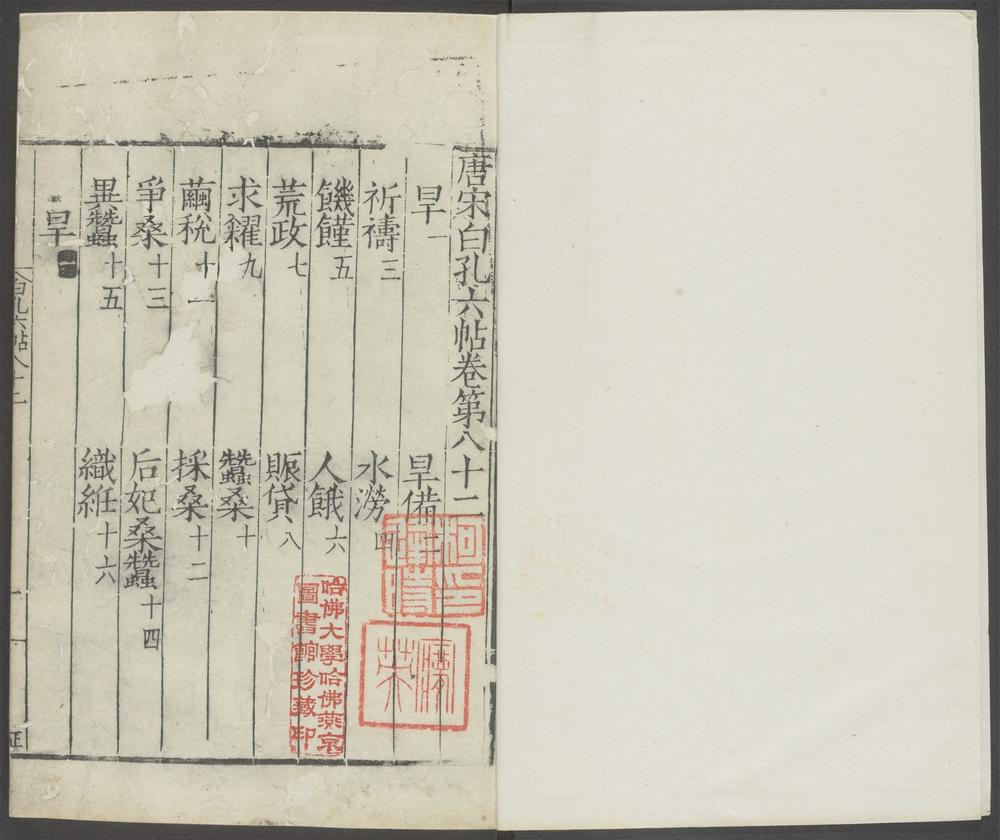 唐宋白孔六帖卷第八十二
旱一 旱備二
祈禱三 水澇四
饑饉五 人餓六
荒政七 賑貸八
求糴九 蠶桑十
繭稅十一 採桑十二
爭桑十三 后妃桑蠶十四
異蠶十五 織絍十六
旱一
白孔六帖八十二
哈佛大學哈佛燕京
圖書館珍藏印